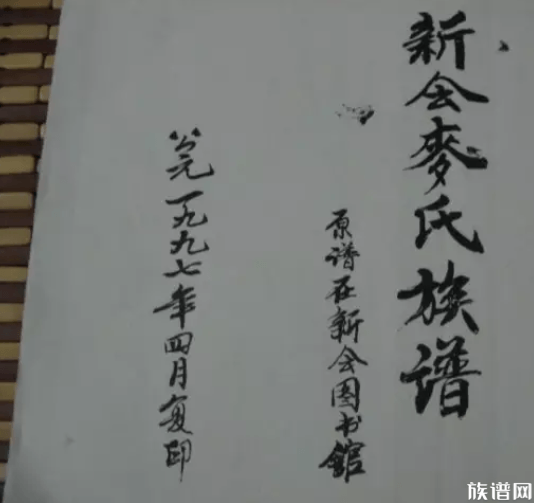 新会麥氏族谱
原谱在新会图书館
公元一九九七年四月复印
族谱网